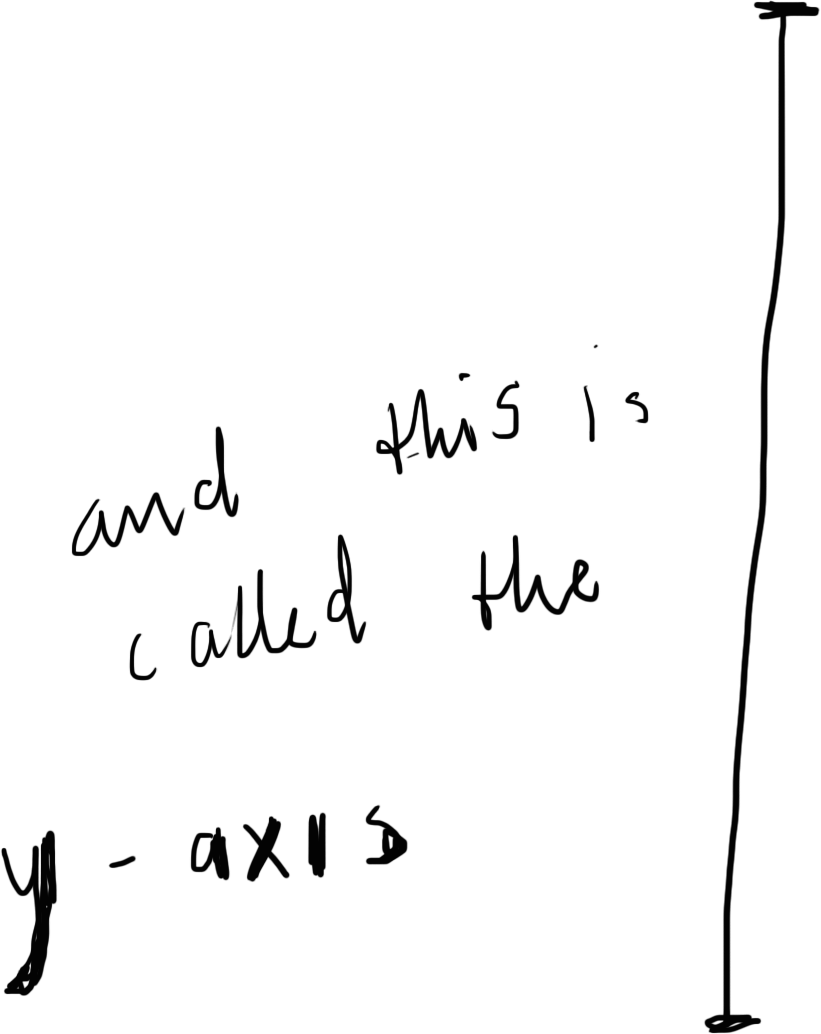 and this is
called the
y - axis